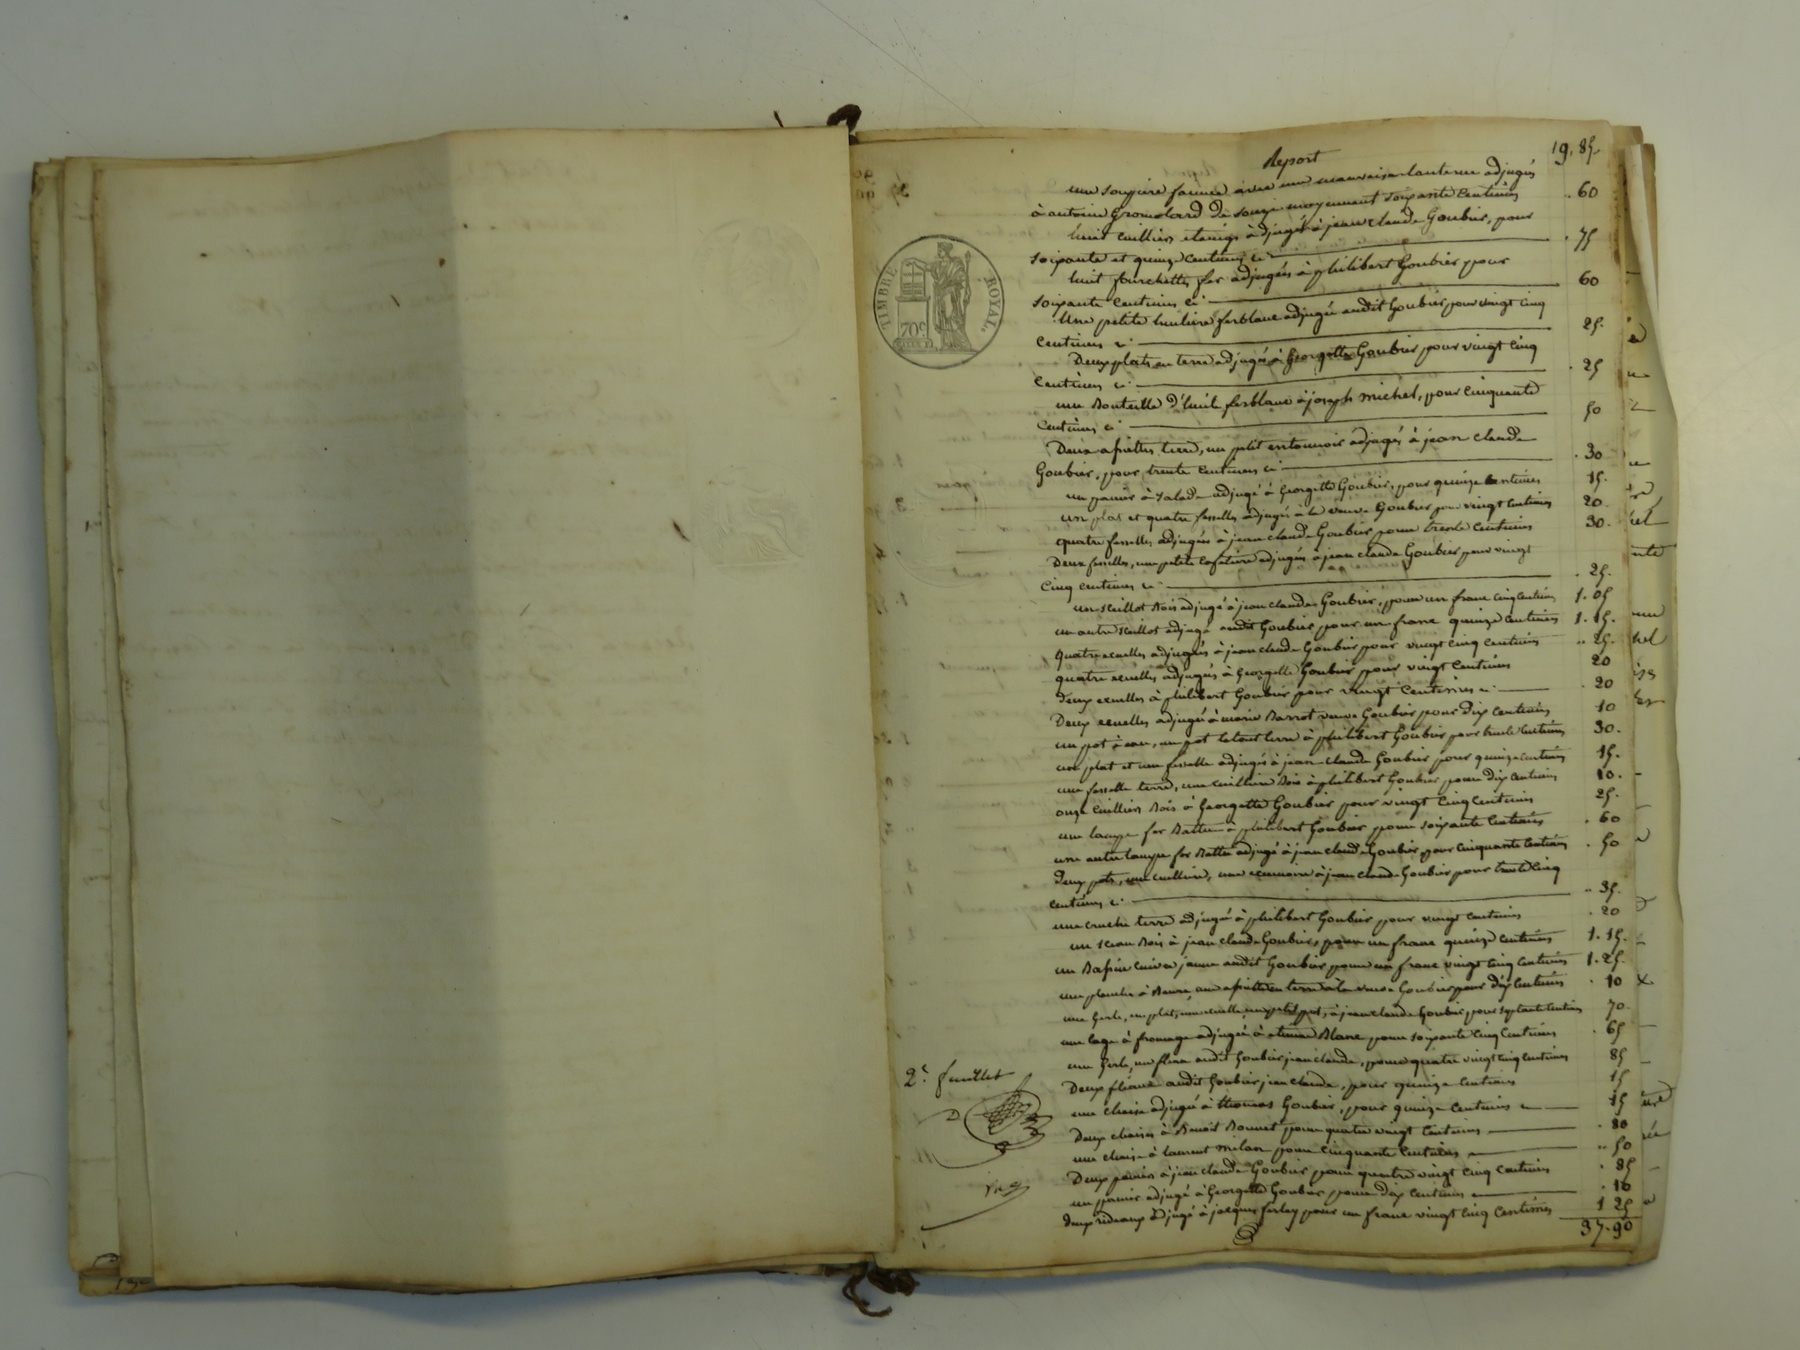 Report 19.85
une soupière fermée avec une mauvaise lanterne adjugés
à antoine Gromolard de
moyennant soixante centimes .60
huit cuilliers étaings adjugés à jean claude Goubier, pour
soixante et quinze centimes ci .75
huit fourchettes fer adjugées à philibert Goubier pour
soixante centimes ci 60
Une petite huiliere ferblanc adjugée audit Goubier pour vingt cinq
centimes ci 25.
Deux plats en terre adjugés à Georgette Goubier pour vingt cinq
centimes ci .25
une Bouteille d'huile ferblanc à joseph michel, pour cinquante
centimes ci 50
Deux assiettes terre, un petit entonnoir adjugés à jean claude
Goubier, pour trente centimes ci .30
un panier à salade adjugé à Georgette Goubier, pour quinze centimes 15.
un plat et quatre fesselles adjugés à la veuve Goubier pour vingt centimes 20
quatre fesselles adjugées à jean claude Goubier pour trente centimes 30.
Deux fesselles, une petite cafetière adjugés à jean claude Goubier pour vingt
cinq centimes ci .25.
un seillot Bois adjugé à jean claude Goubier, pour un franc cinq centimes 1.05
un autre seillot adjugé audit Goubier pour un franc quinze centimes 1.15.
quatre ecuelles adjugées à jean claude Goubier pour vingt cinq centimes .. 25.
quatre ecuelles adjugées à Georgette Goubier pour vingt centimes 20
deux ecuelles à philibert Goubier pour vingt centimes ci .20
Deux ecuelles adjugé à marie Barrot veuve Goubier pour dix centimes 10
un pot à eau, un pot le tout terre à philibert Goubier pour trente centimes 30.
un plat et une fesselle adjugés à jean claude Goubier pour quinze centimes 15.
une fesselle terre, une cuillière Bois à philibert Goubier pour dix centimes 10.
onze cuilliers Bois à Georgette Goubier pour vingt cinq centimes 25.
une lampe fer Battu à philibert Goubier pour soixante centimes .60
une autre lampe fer Battu adjugé à jean claude Goubier pour cinquante centimes .50
deux pots, une cuillière, une ecumoire à jean claude Goubier pour trente cinq
centimes ci .. 35.
une cruche terre adjugée à philibert Goubier pour vingt centimes .20
un seau Bois à jean claude Goubier, pour un franc quinze centimes 1.15.
un Bassin cuivre jaune audit Goubier pour un franc vingt cinq centimes 1.25.
une planche à Beurre, une assiette en terre à la veuve Goubier pour dix centimes .10
une Gerle, un plat, une ecuelle, un petit pot, à jean claude Goubier pour septante centimes 70.
une cage à fromage adjugée à etienne Blanc pour soixante cinq centimes .65
une Gerle, un fleau audit Goubier jean claude, pour quatre vingt cinq centimes 85
Deux fléaux audit Goubier jean claude, pour quinze centimes 15
une chaise adjugé à thomas Goubier, pour quinze centimes ci 15
Deux chaises à Benoit Bonnet pour quatre vingt centimes .80
une chaise à laurent milan pour cinquante centimes .. 50
Deux paniers à jean claude Goubier pour quatre vingt cinq centimes .85
un panier adjugé à Georgette Goubier pour dix centimes .10
deux rideaux adjugé à jacques ferlay pour un franc vingt cinq centimes 1 25
37.90
TIMBRE ROYAL.
70c
2e feuillet